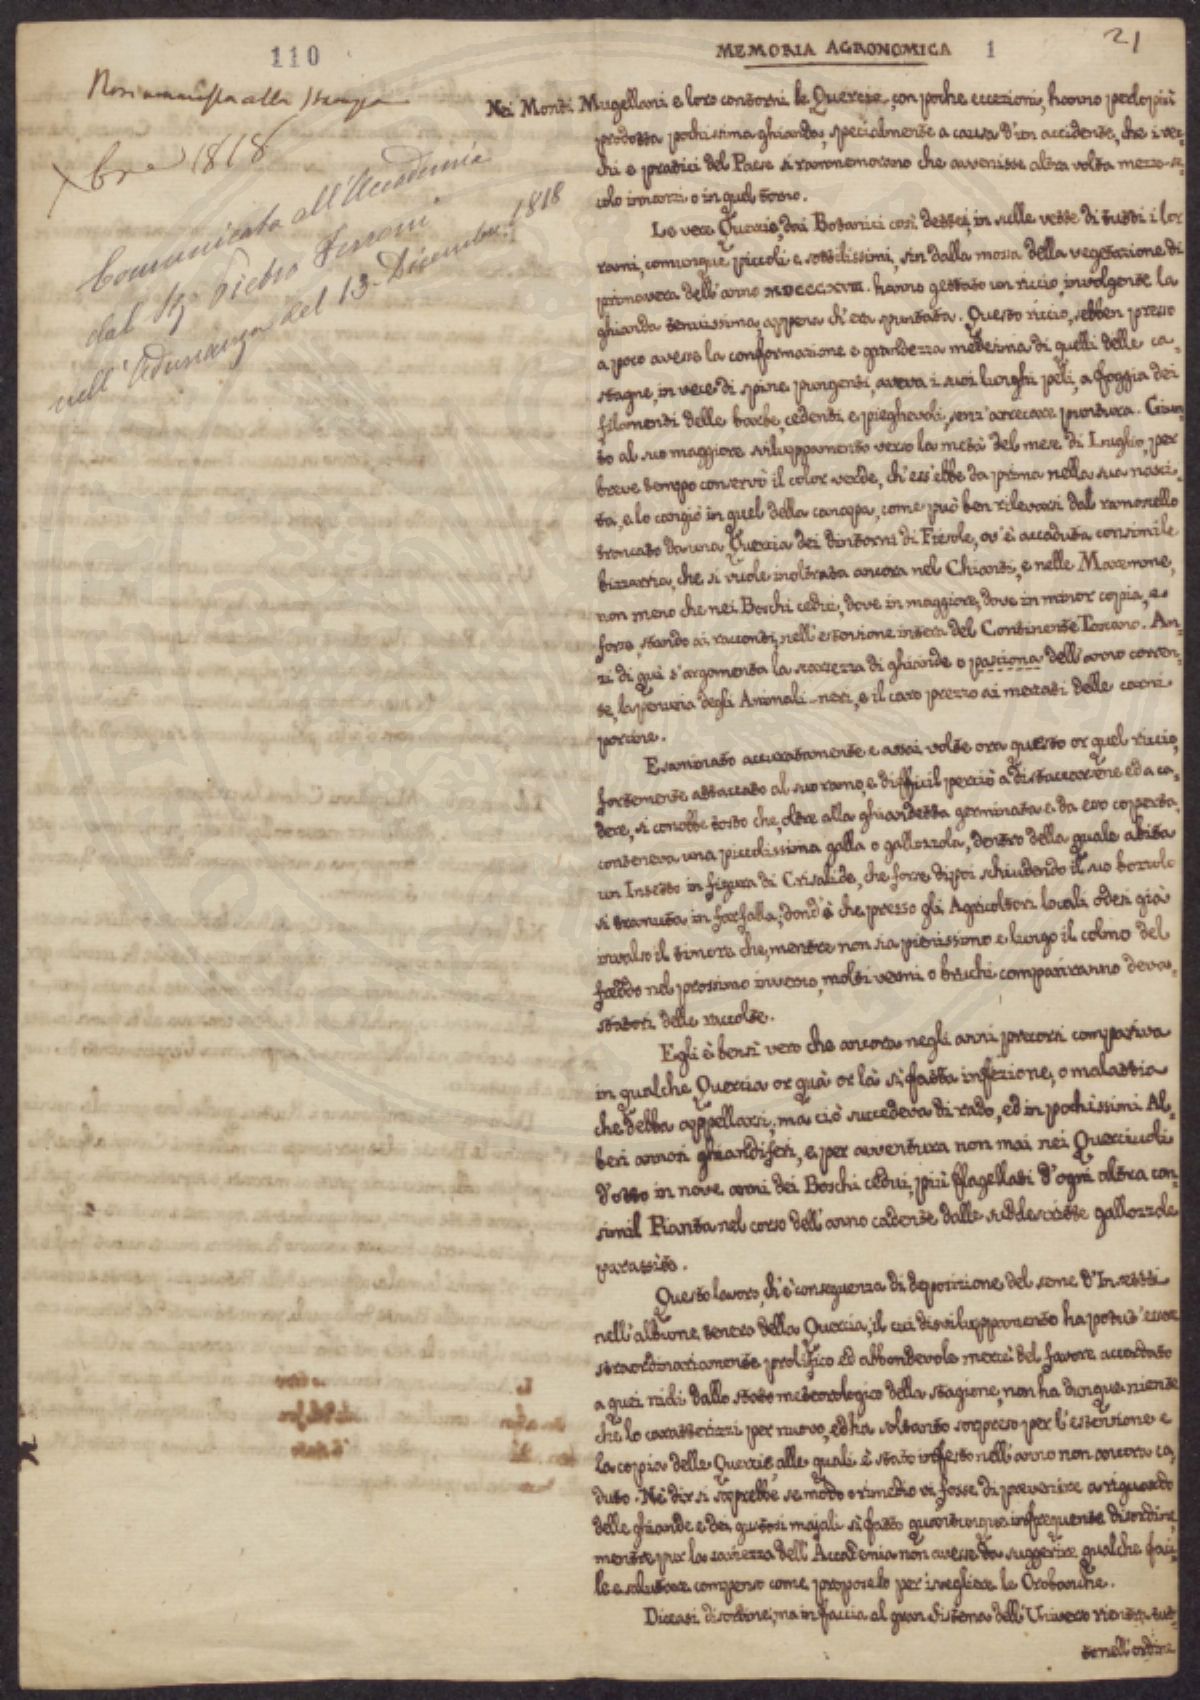 110
MEMORIA AGRONOMICA 1
21
Non ammessa alla stampa
Xbre 1818
Comunicata all'Accademia
dal Sig. Pietro Ferroni
nell'Adunanza del 13 Dicembre 1818
Nei Monti Mugellani e loro contorni le Quercie, con poche eccezioni, hanno perlopiù
prodotta pochissima ghianda, specialmente a causa d'un accidente, che i vec-
chi e pratici del Paese si rammemorano che avvenisse altra volta mezzo se-
colo innanzi o in quel torno.
Le vere Quercie, dai Botanici così dette, in sulle vette di tutti i lor
rami, comunque piccoli e sottilissimi, sin dalla mossa della vegetazione di
primavera dell'anno MDCCCXVIII hanno gettato un riccio, involgente la
ghianda tenuissima, appena ch'era spuntata. Questo riccio, sebben presso
a poco avesse la conformazione e grandezza medesima di quelli delle ca-
stagne, in vece di spine pungenti, aveva i suoi lunghi peli, a foggia dei
filamenti delle barbe, cedenti e pieghevoli, senz'arrecare puntura. Giun-
to al suo maggiore sviluppamento verso la metà del mese di Luglio, per
breve tempo conservò il color verde, ch'ess'ebbe da prima nella sua nasci-
ta, e lo cangiò in quel della canapa, come può ben rilevarsi dal ramoscello
troncato da una Quercia dei dintorni di Fiesole, ov'è accaduta consimile
bizzarria, che si vuole inoltrata ancora nel Chianti, e nelle Maremme,
non meno che nei Boschi cedui, dove in maggiore, dove in minor copia, e
forse, stando ai racconti, nell'estensione intera del Continente Toscano. An-
zi di quì s'argomenta la scarsezza di ghiande o pastiona dell'anno corren-
te, la penuria degli Animali neri, e il caro prezzo ai mercati delle carni
porcine.
Esaminato accuratamente e assai volte ora questo or quel riccio,
fortemente attaccato al suo ramo, e difficil perciò a distaccarsene ed a ca-
dere, si conobbe tosto che, oltre alla ghiandetta germinata e da esso coperta,
conteneva una piccolissima galla o gallozzola, dentro della quale abita
un Insetto in figura di Crisalide, che forse dipoi schiudendo il suo bozzolo
si tramuta in farfalla; dond'è che presso gli Agricoltori locali odesi già
invalso il timore che, mentre non sia pienissimo e lungo il colmo del
freddo nel prossimo inverno, molti vermi o bruchi compariranno deva-
statori delle raccolte.
Egli è bensì vero che ancora negli anni precorsi compariva
in qualche Quercia or quà or là sì fatta infezione, o malattia
che debba appellarsi; ma ciò succedeva di rado, ed in pochissimi Al-
beri annosi ghiandiferi, e per avventura non mai nei Querciuoli
d'otto in nove anni dei Boschi cedui, più flagellati d'ogni altra con-
simil Pianta nel corso dell'anno cadente dalle suddescritte gallozzole
parassite.
Questo lavoro, ch'è conseguenza di deposizione del seme d'Insetti
nell'albume tenero della Quercia, il cui disviluppamento ha potuto essere
straordinariamente prolifico ed abbondevole mercè del favore accordato
a quei nidi dallo stato meteorologico della stagione, non ha dunque niente
che lo caratterizzi per nuovo, ed ha soltanto sorpreso per l'estensione e
la copia delle Quercie alle quali è stato infesto nell'anno non ancora ca-
duto. Nè dir si saprebbe se modo o rimedio vi fosse di prevenire a riguardo
delle ghiande e dei ghiottoni majali sì fatto quantunque infrequente disordine,
mentre pur la saviezza dell'Accademia non avesse da suggerire qualche faci-
le e salutare compenso come proposelo per isvegliere le Orobanche.
Dicasi disordine; ma in faccia al gran sistema dell'Universo rientra tut-
to nell'ordine